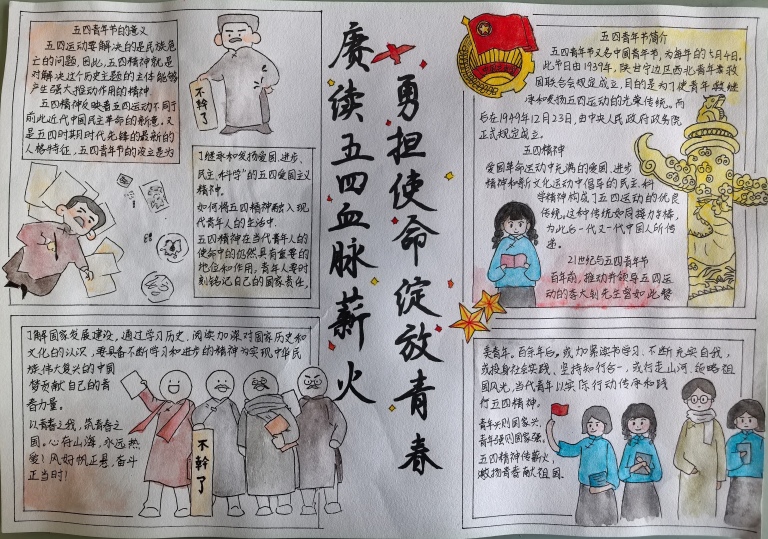 五四青年节的意义
五四运动要解决的是民族危
亡的问题,因此,五四精神就是
对解决这个历史主题的主体能够
产生强大推动作用的精神.
五四精神反映着五四运动不同于
前此近代中国民主革命的新意.又
是五四时期时代先锋的最新的
人格特征,五四青年节的设立是为
不幹了
了继承和发扬爱国、进步、
民主、科学"的五四爱国主义
精神.
如何将五四精神融入现
代青年人的生活中.
五四精神在当代青年人的
使命中的仍然具有重要的
地位和作用,青年人要时
刻铭记自己的国家责任,
了解国家发展建设,通过学习历史、阅读加深对国家历史和
文化的认识,要具备不断学习和进步的精神为实现中华民
族伟大复兴的中国
梦贡献自己的青
春力量.
以青春之我,筑青春之
国。心向山海,永远热
爱!风好帆正悬,奋斗
正当时!
不幹了
赓续五四血脉薪火
勇担使命绽放青春
五四青年节简介
五四青年节又名中国青年节,为每年的5月4日.
此节日由1939年,陕甘宁边区西北青年救
国联合会规定成立,目的是为了使青年继
承和发扬五四运动的光荣传统。而
后在1949年12月23日,由中央人民政府政务院
正式规定成立.
五四精神
爱国革命运动中充满的爱国、进步
精神和新文化运动中倡导的民主、科
学精神构成了五四运动的优良
传统,这种传统如同接力棒,
为此后一代又一代中国人所传
递。
21世纪与五四青年节
百年前,推动并领导五四运
动的李大钊先生曾如此赞
美青年。百余年后,或加紧读书学习、不断充实自我,
或投身社会实践、坚持知行合一,或行走山河、领略祖
国风光,当代青年以实际行动传承和践
行五四精神。
青年兴则国家兴,
青年强则国家强。
五四精神传薪火,
激扬青春献祖国。